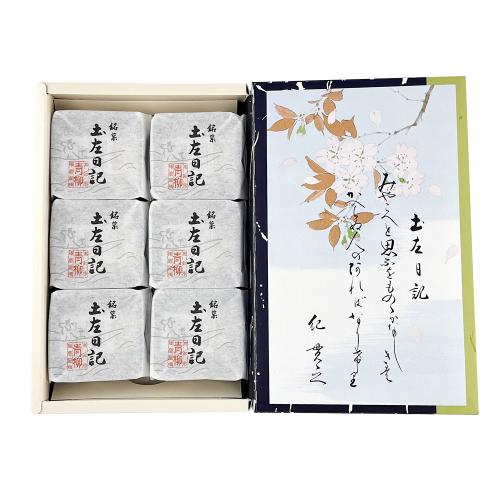 土左日記
みやこへと思ふをものゝかなしきは
かへらぬ人のあればなりけり
紀貫之
銘菓
土左日記
青柳
銘菓
土左日記
青柳
銘菓
土左日記
青柳
銘菓
土左日記
青柳
銘菓
土左日記
青柳
銘菓
土左日記
青柳